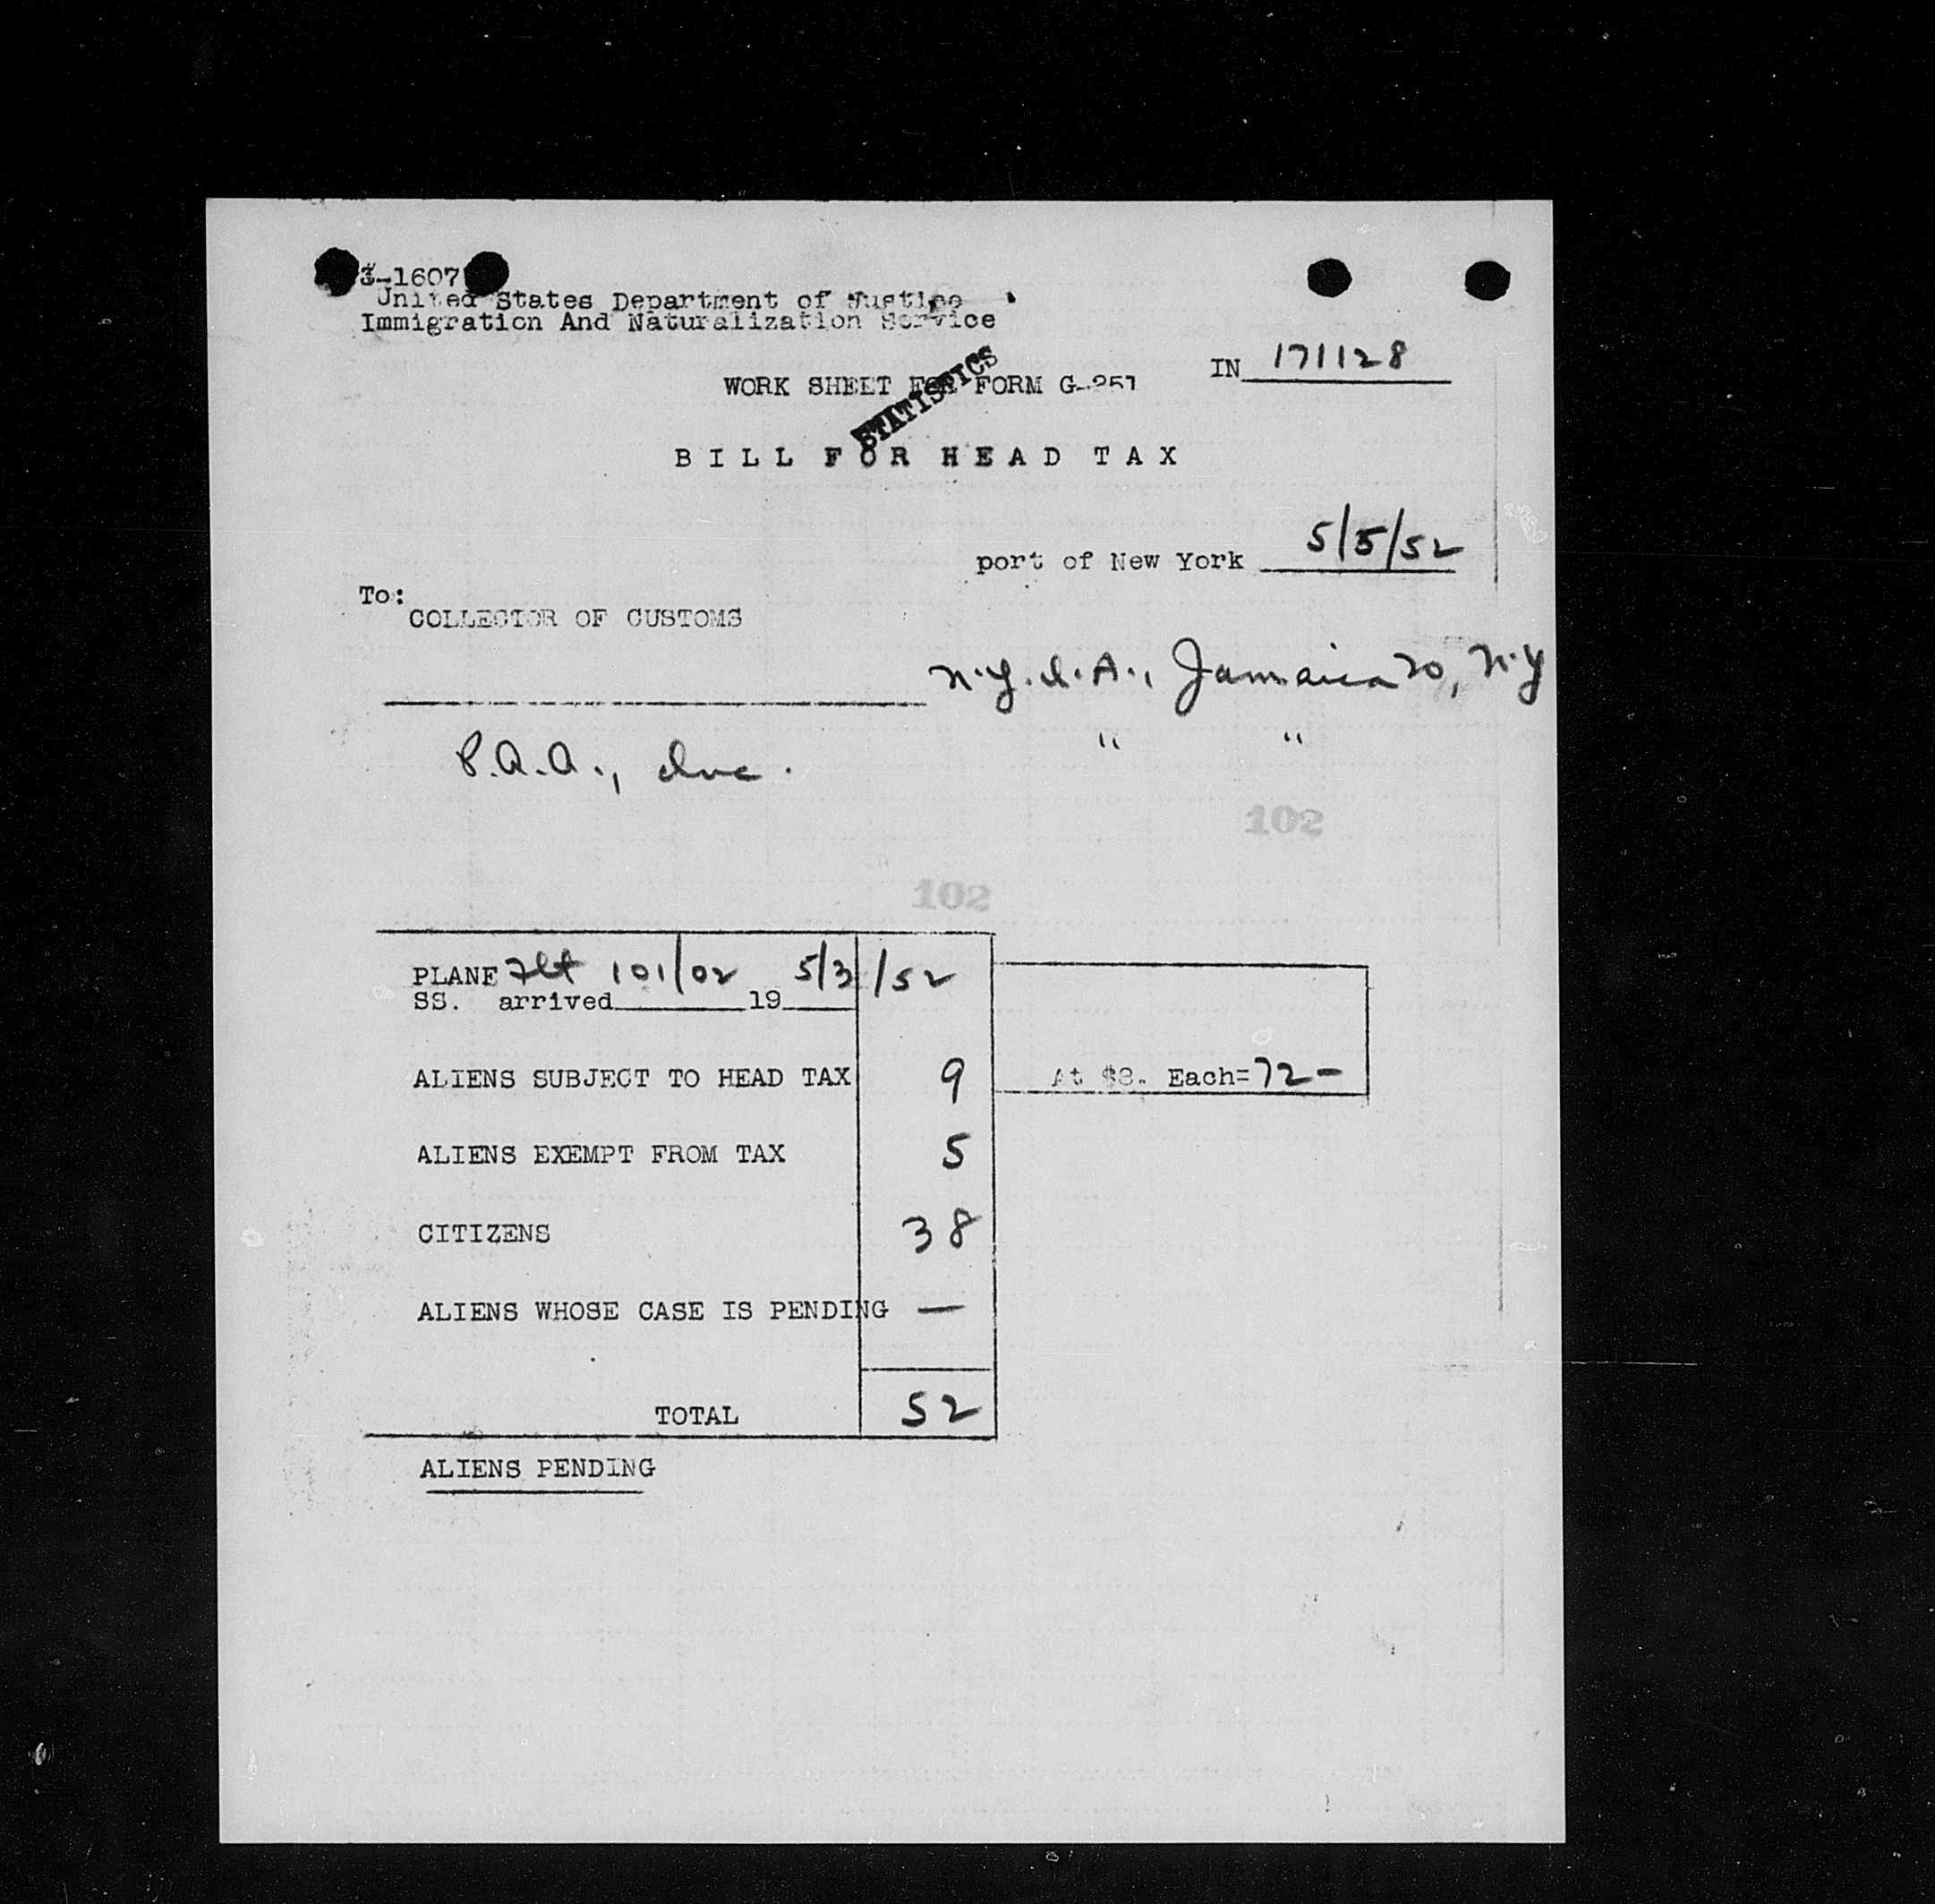 3-1607
United States Department of Justice
Immigration And Naturalization Service
IN 171128
WORK SHEET FOR FORM G-251
STATISTICS
BILL FOR HEAD TAX
port of New York 5/5/52
To:
COLLECTOR OF CUSTOMS
N.Y.I.A., Jamaica 20, N.Y
P.A.A., Inc. " "
102
102
PLANE Flt 101/02 5/3/52
SS. arrived 19
ALIENS SUBJECT TO HEAD TAX 9 At $8. Each= 72-
ALIENS EXEMPT FROM TAX 5
CITIZENS 38
ALIENS WHOSE CASE IS PENDING —
TOTAL 52
ALIENS PENDING